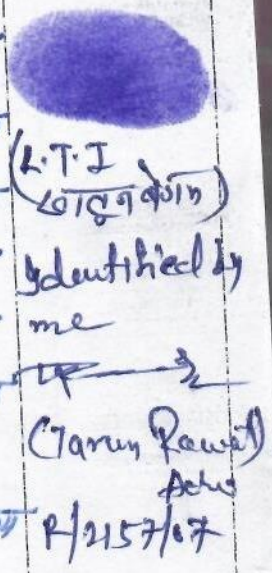 (L.T.I
Identified by
me
(Tarun Rawat)
Adv
R/2157/07